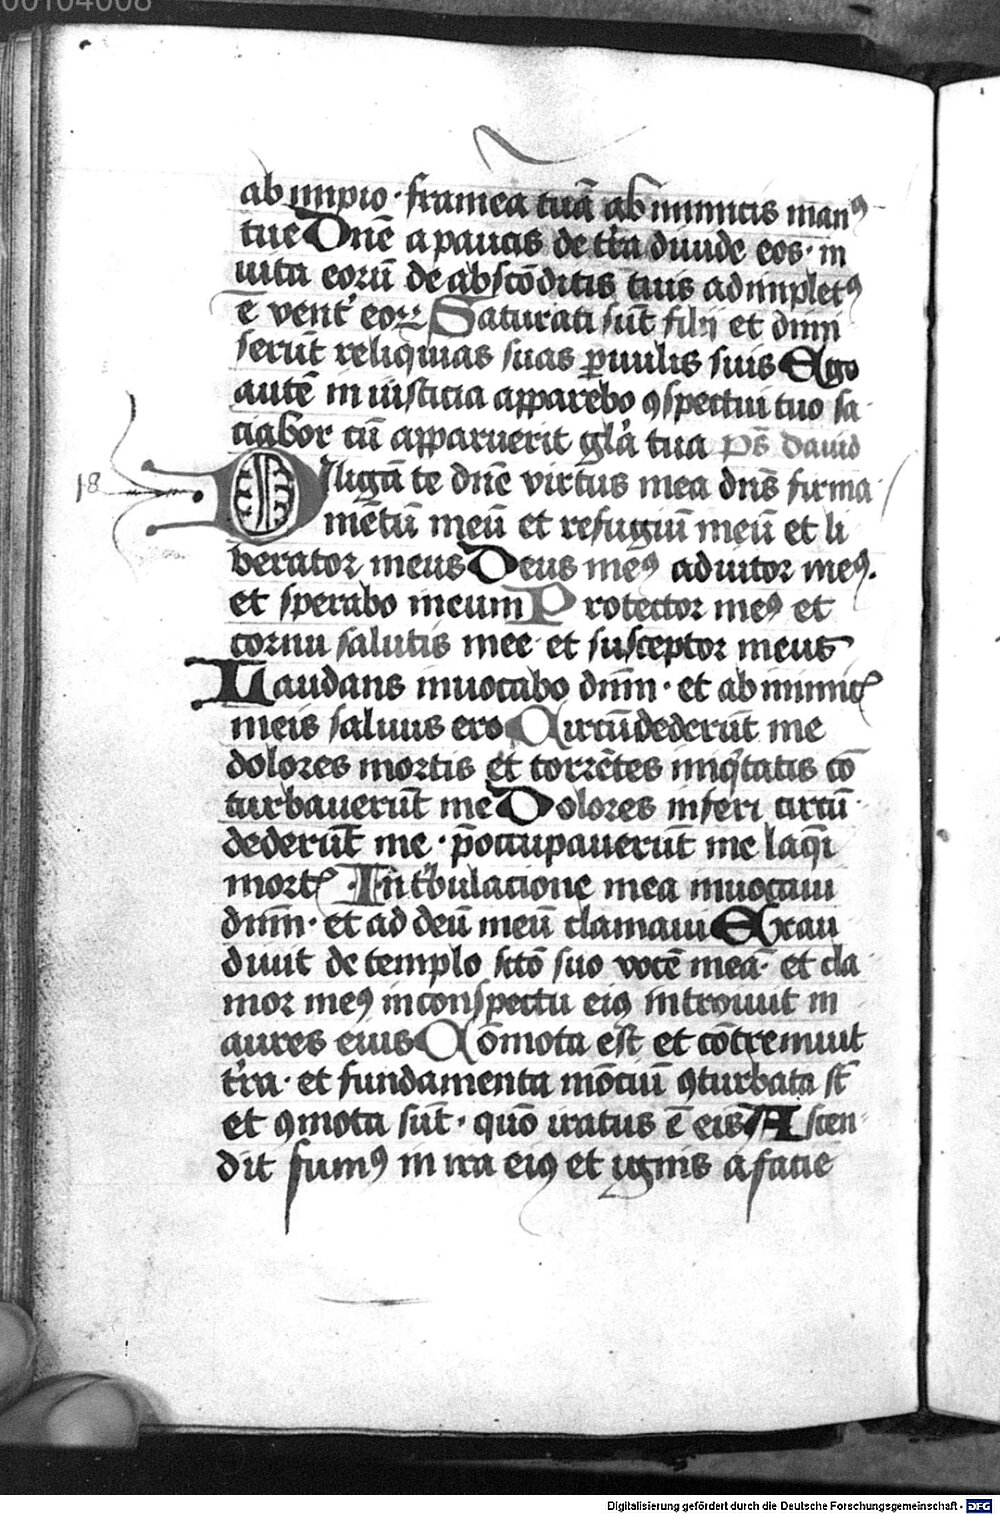 00104008
ab impio · frameā tuā ab inimicis manꝰ
tue Dn̄e a paucis de tr̄a diuide eos · in
uita eorū de abscōditis tuis adimpletꝰ
ē vent᷑ eoꝝ Saturati sūt filii et dimi
serūt reliquias suas ꝑuulis suis Ego
autē in iusticia apparebo ꝯspectui tuo sa
ciabor cū apparuerit gl̄a tua ps̄ dauid
18 Diligā te dn̄e virtus mea dn̄s firma
mētū meū et refugiū meū et li
berator meus Deus meꝰ adiutor meꝰ.
et sperabo in eum Protector meꝰ et
cornu salutis mee · et susceptor meus
Laudans inuocabo dn̄m · et ab inimicꝭ
meis saluus ero Circūdederūt me
dolores mortis et torrētes iniq̄tatis cō
turbauerūt me Dolores inferi circū
dederūt me · p̄occupauerūt me laq̄i
mortꝭ · In t᷑bulacione mea inuocaui
dn̄m · et ad deū meū clamaui Exau
diuit de templo sctō suo vocē meā · et cla
mor meꝰ in conspectu eiꝰ introiuit in
aures eius Cōmota est et cōtremuit
tr̄a · et fundamenta mōciū ꝯturbata st̄
et ꝯmota sūt · quō iratus ē eis Ascen
dit fumꝰ in ira eiꝰ et ignis a facie
Digitalisierung gefördert durch die Deutsche Forschungsgemeinschaft - DFG